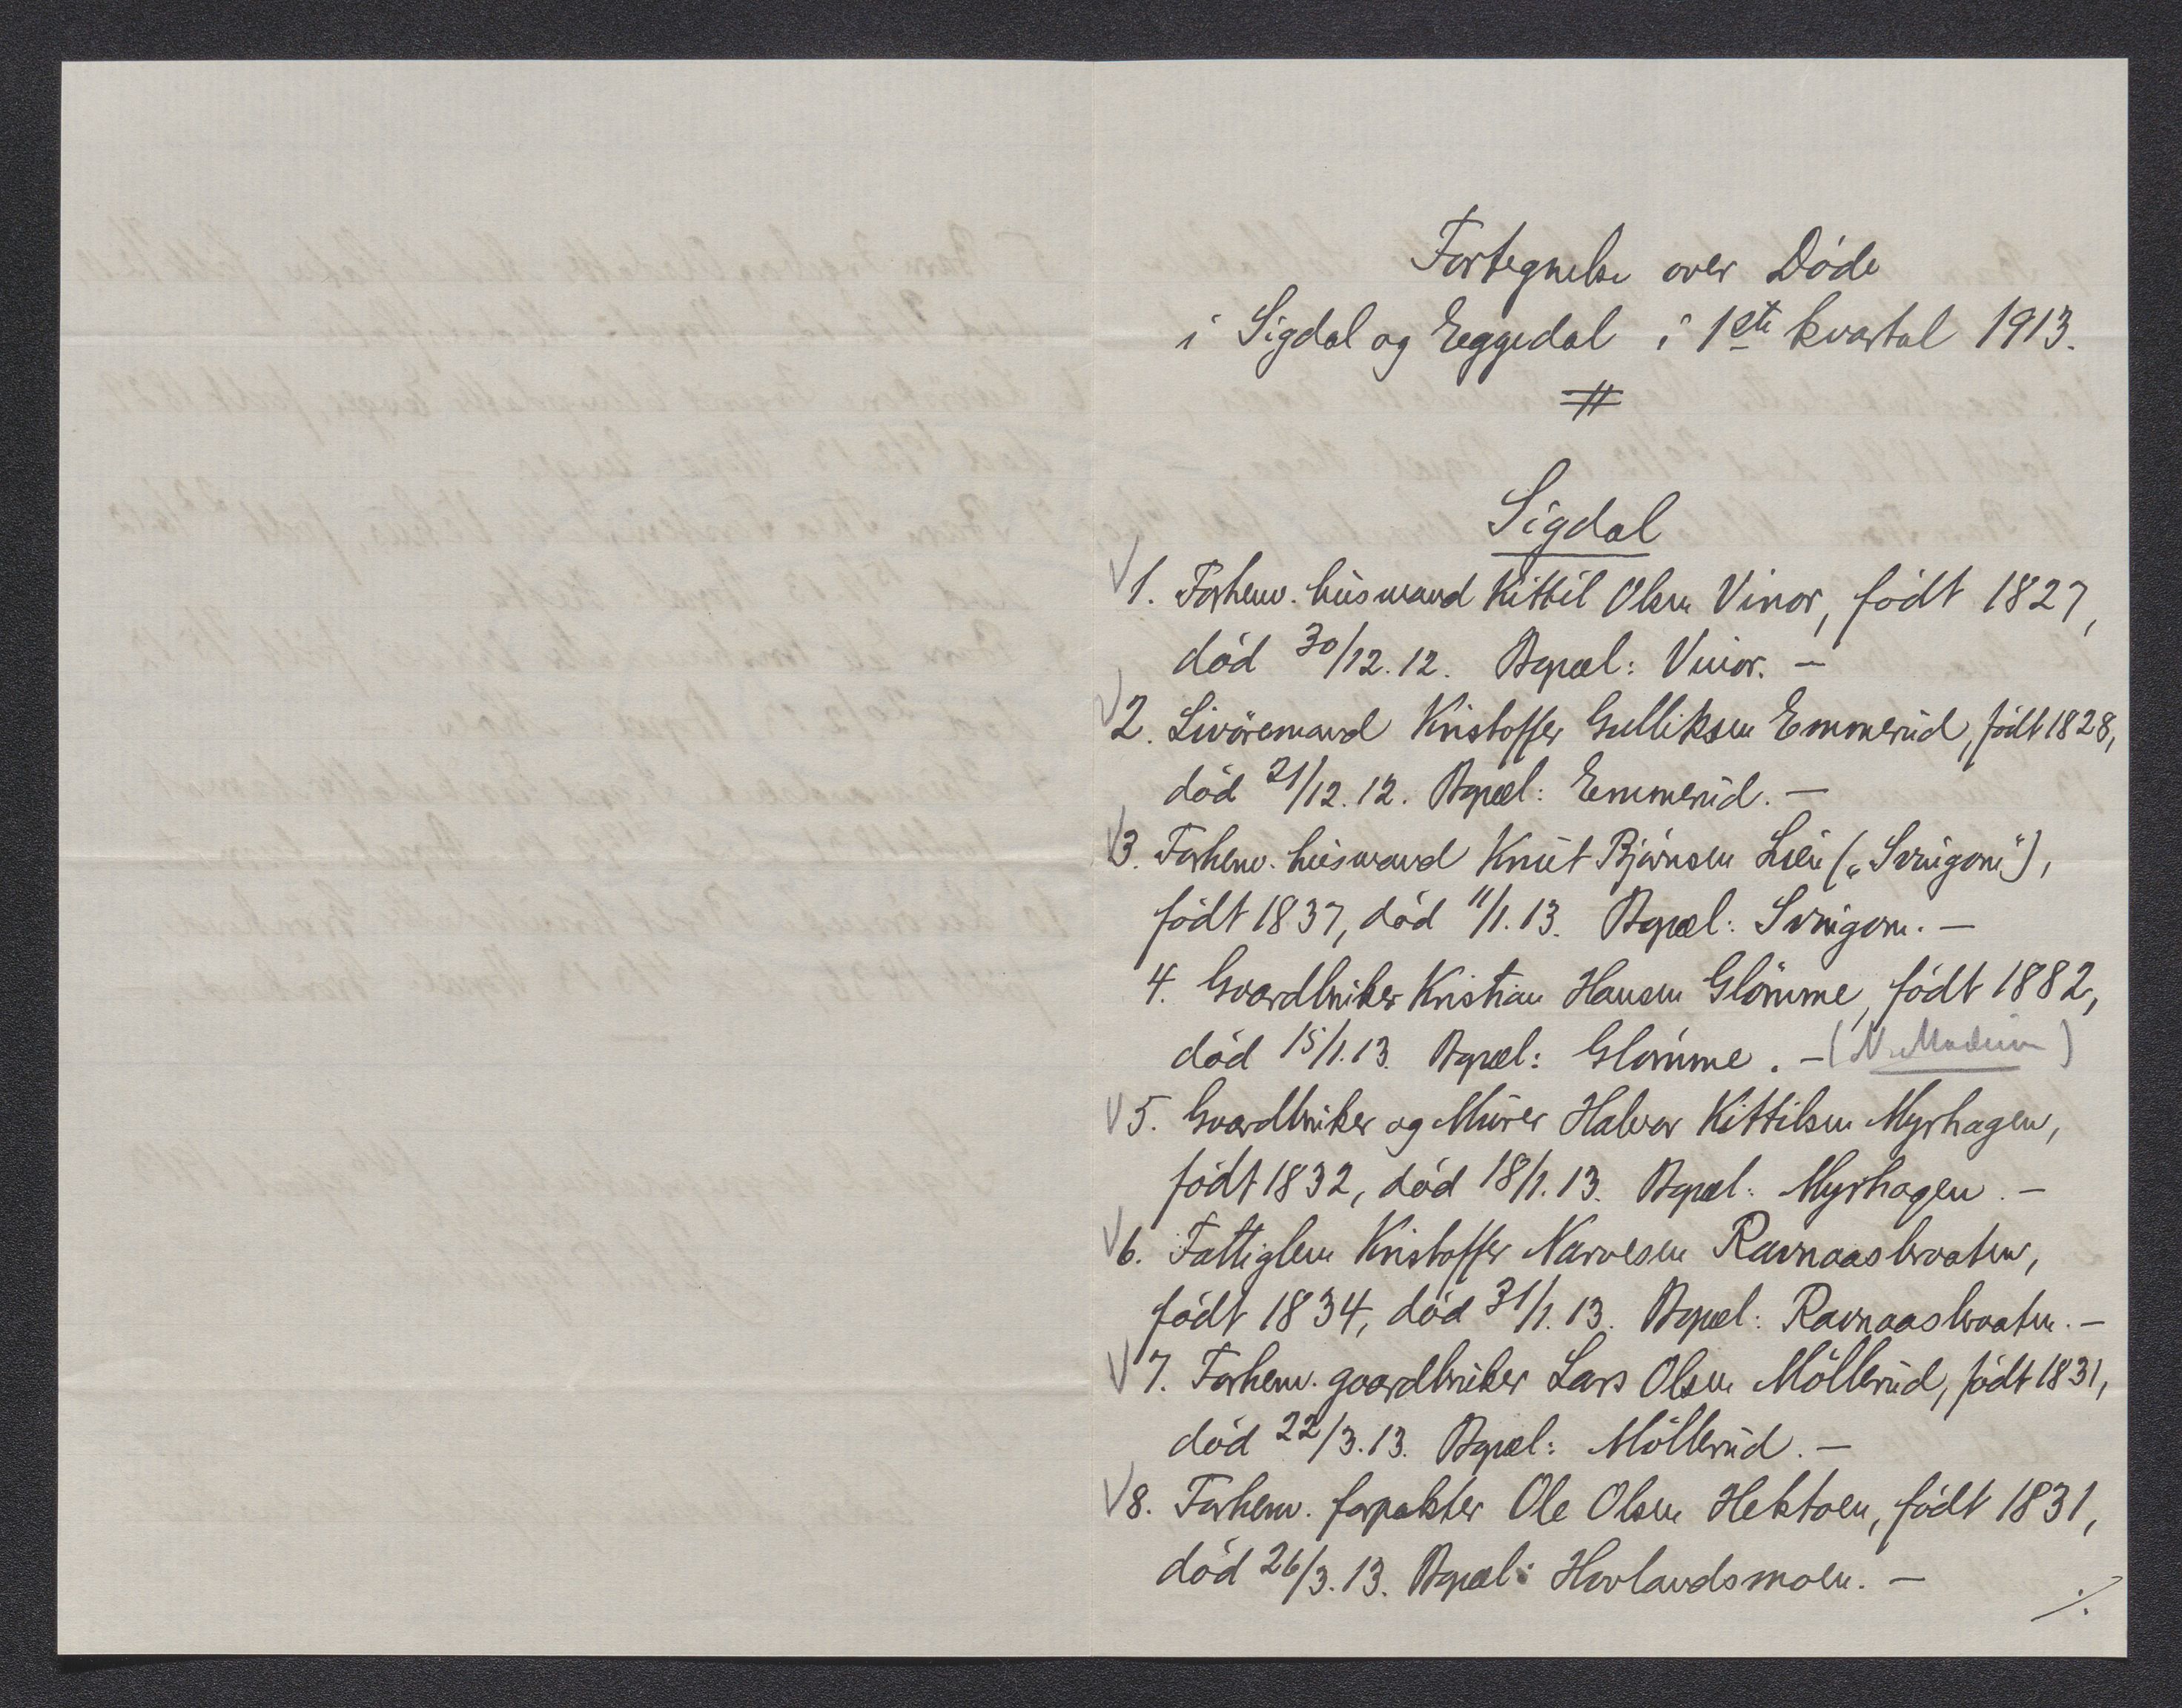 Fortegnelse over Døde
i Sigdal og Eggedal i 1ste kvartal 1913.
Sigdal
1. Forhenv. husmand Kittil Olsen Vinor, født 1827,
død 30/12.12. Bopæl: Vinor. —
2. Livøremand Kristoffer Gulliksen Emmerud, født 1828,
død 21/12.12. Bopæl: Emmerud. —
3. Forhenv. husmand Knut Bjørnsen Lien („Svingom“),
født 1837, død 11/1.13. Bopæl: Svingom. —
4. Gaardbruker Kristian Hansen Glømme, født 1882,
død 15/1.13. Bopæl: Glømme. — (N. Modum)
5. Gaardbruker og Murer Halvor Kittilsen Myrhagen,
født 1832, død 18/1.13. Bopæl: Myrhagen. —
6. Fattiglem Kristoffer Narvesen Ravnaasbraaten,
født 1834, død 31/1.13. Bopæl: Ravnaasbraaten. —
7. Forhenv. gaardbruker Lars Olsen Møllerud, født 1831,
død 22/3.13. Bopæl: Møllerud. —
8. Forhenv. forpakter Ole Olsen Hektoen, født 1831,
død 26/3.13. Bopæl: Hovlandsmoen. —
./.